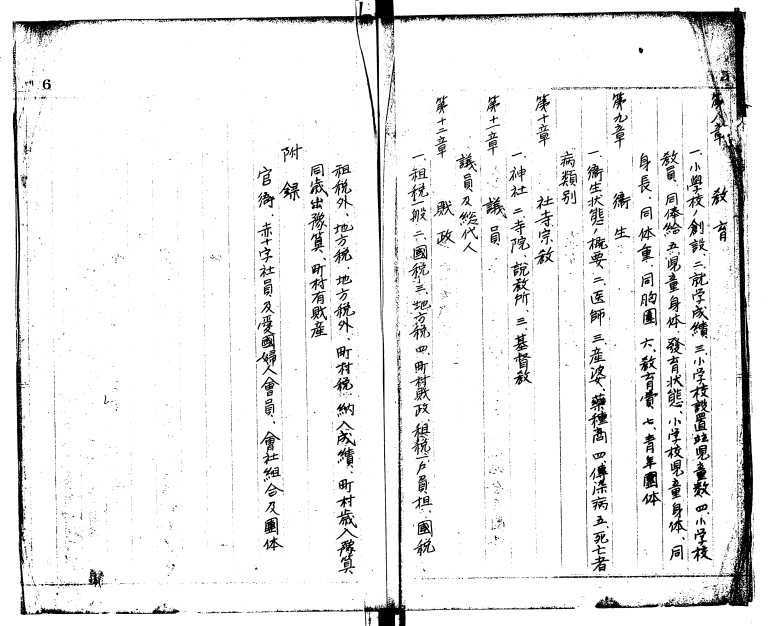 第八章　教育
一、小學校ノ創設、二就学成績 三小学校設置竝児童数 四、小学校
教員、同俸給 五児童身体発育状態、小学校児童身体、同
身長、同体重、同胸圍 六、教育費 七、青年團体
第九章　衞生
一、衛生状態ノ概要 二、医師 三、産婆、藥種商 四傳染病 五、死亡者
病類別
第十章　社寺宗教
一、神社 二、寺院、説教所、三、基督教
第十一章　議員
議員及総代人
第十二章　財政
一、租税一般 二、國税 三、地方税 四、町村財政、租税一戸員担、國税
6
租税外、地方税、地方税外、町村税、納入成績、町村歳入豫算
同歳出豫算、町村有財産
附録
官衙、赤十字社員及愛國婦人會員、會社組合及團体